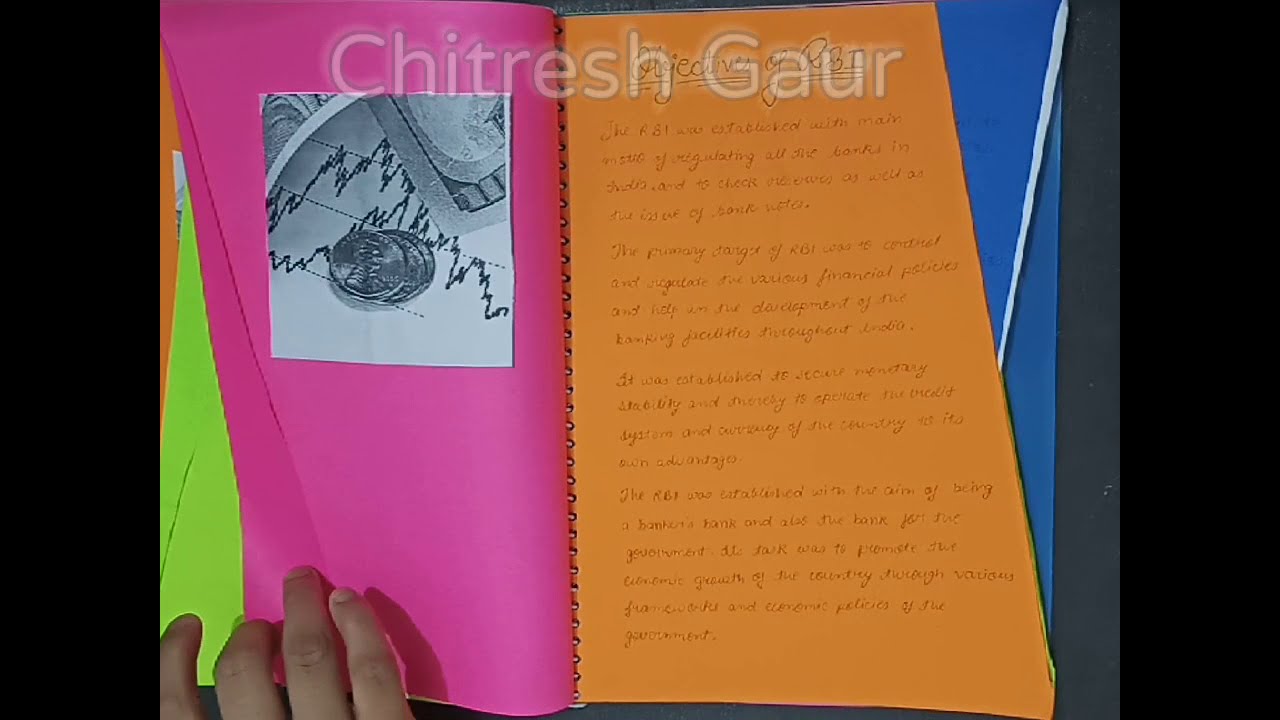 Chitresh Gaur
Objectives of RBI
The RBI was established with main
motto of regulating all the banks in
India, and to check reserves as well as
the issue of bank notes.
The primary target of RBI was to control
and regulate the various financial policies
and help in the development of the
banking facilities throughout India.
It was established to secure monetary
stability and thereby to operate the credit
system and currency of the country to its
own advantages.
The RBI was established with the aim of being
a banker's bank and also the bank for the
government. Its task was to promote the
economic growth of the country through various
frameworks and economic policies of the
government.